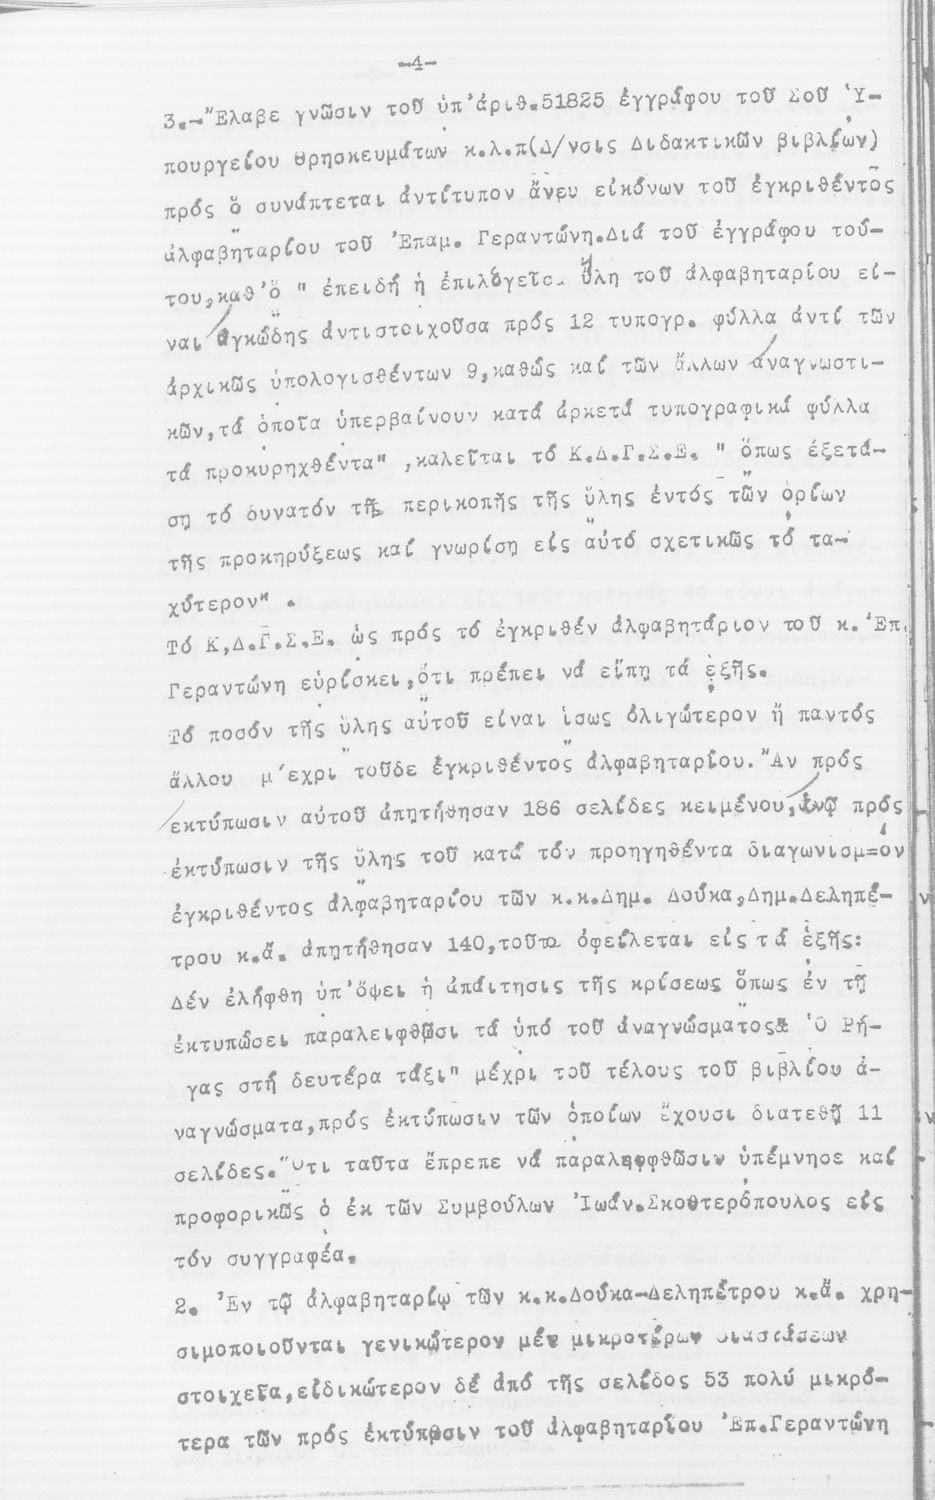 -4-
3.-Ἔλαβε γνῶσιν τοῦ ὑπ'ἀριθ.51825 ἐγγράφου τοῦ Σοῦ Ὑ-
πουργείου θρησκευμάτων κ.λ.π(Δ/νσις Διδακτικῶν βιβλίων)
πρός ὅ συνάπτεται ἀντίτυπον ἄνευ εἰκόνων τοῦ ἐγκριθέντος
ἀλφαβηταρίου τοῦ Ἐπαμ. Γεραντώνη.Διά τοῦ ἐγγράφου τού-
του,καθ'ὅ " ἐπειδή ἡ ἐπιλογεῖσα ὕλη τοῦ ἀλφαβηταρίου εἶ-
ναι ὀγκώδης ἀντιστοιχοῦσα πρός 12 τυπογρ. φύλλα ἀντί τῶν
ἀρχικῶς ὑπολογισθέντων 9,καθώς καί τῶν ἄλλων ἀναγνωστι-
κῶν,τά ὁποῖα ὑπερβαίνουν κατά ἀρκετά τυπογραφικά φύλλα
τά προκυρηχθέντα" ,καλεῖται τό Κ.Δ.Γ.Σ.Ε. " ὅπως ἐξετά-
ση τό δυνατόν τῆς περικοπῆς τῆς ὕλης ἐντός τῶν ὁρίων
τῆς προκηρύξεως καί γνωρίση εἰς αὐτό σχετικῶς τό τα-
χύτερον" .
Τό Κ,Δ.Γ.Σ.Ε. ὡς πρός τό ἐγκριθέν ἀλφαβητάριον τοῦ κ.Ἐπ.
Γεραντώνη εὑρίσκει,ὅτι πρέπει νά εἴπη τά ἑξῆς.
Τό ποσόν τῆς ὕλης αὐτοῦ εἶναι ἴσως ὀλιγώτερον ἤ παντός
ἄλλου μ'εχρι τοῦδε ἐγκριθέντος ἀλφαβηταρίου. Ἄν πρός
ἐκτύπωσιν αὐτοῦ ἀπητήθησαν 186 σελίδες κειμένου,ἐνῷ πρός
ἐκτύπωσιν τῆς ὕλης τοῦ κατά τόν προηγηθέντα διαγωνισμ=όν
ἐγκριθέντος ἀλφαβηταρίου τῶν κ.κ.Δημ. Δούκα,Δημ.Δεληπέ-
τρου κ.ἄ. ἀπητήθησαν 140,τοῦτο ὀφείλεται εἰς τά ἑξῆς:
Δέν ἐλήφθη ὑπ'ὄψει ἡ ἀπαίτησις τῆς κρίσεως ὅπως ἐν τῇ
ἐκτυπώσει παραλειφθῶσι τά ὑπό τοῦ ἀναγνώσματος" Ὁ Ρή-
γας στή δευτέρα τάξι" μέχρι τοῦ τέλους τοῦ βιβλίου ἀ-
ναγνώσματα,πρός ἐκτύπωσιν τῶν ὁποίων ἔχουσι διατεθῆ 11
σελίδες.Ὅτι ταῦτα ἔπρεπε νά παραληφθῶσιν ὑπέμνησε καί
προφορικῶς ὁ ἐκ τῶν Συμβούλων Ἰωάν.Σκουτερόπουλος εἰς
τόν συγγραφέα.
2. Ἐν τῷ ἀλφαβηταρίῳ τῶν κ.κ.Δούκα-Δεληπέτρου κ.ἄ. χρη-
σιμοποιοῦνται γενικώτερον μέν μικροτέρων διαστάσεων
στοιχεῖα,εἰδικώτερον δέ ἀπό τῆς σελίδος 53 πολύ μικρό-
τερα τῶν πρός ἐκτύπωσιν τοῦ ἀλφαβηταρίου Ἐπ.Γεραντώνη